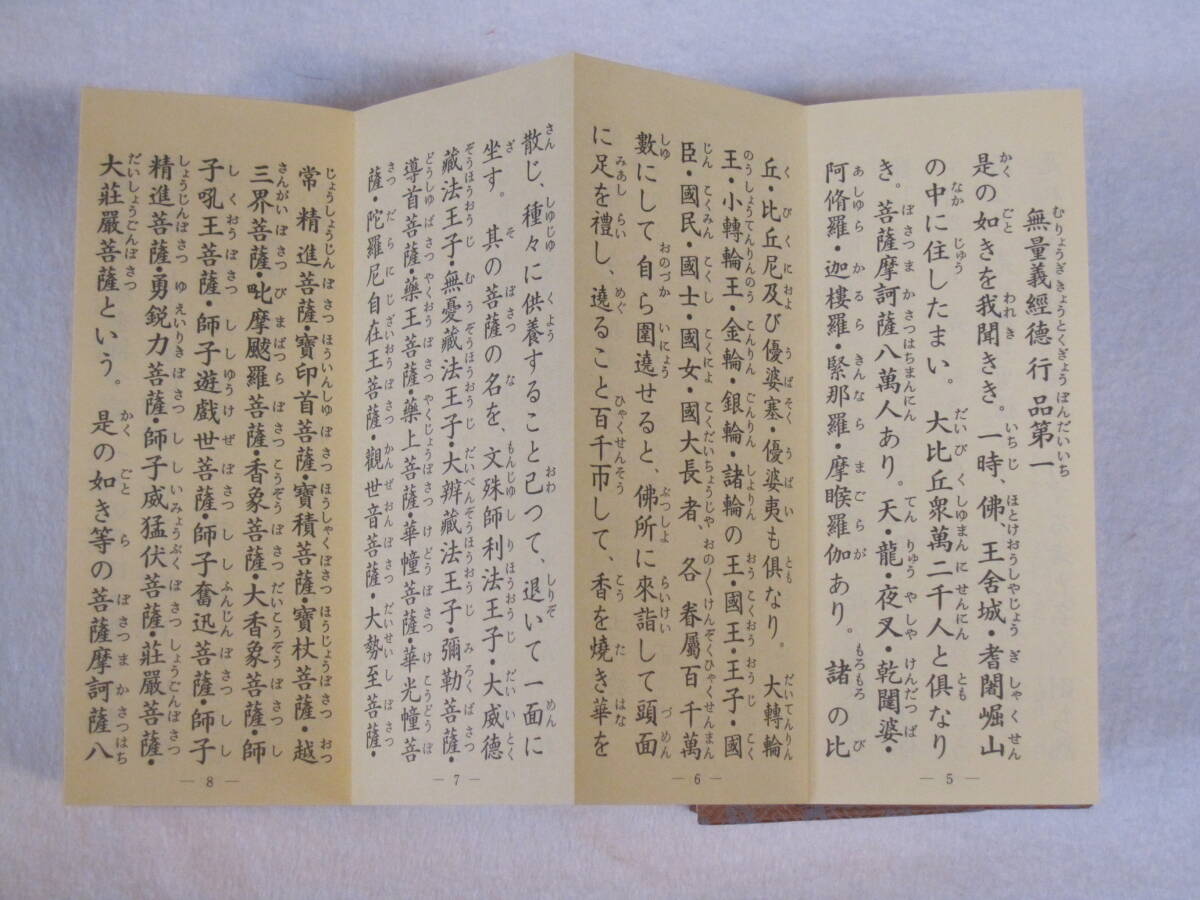 無量義經德行品第一
是の如きを我聞きき。一時、佛、王舍城・耆闍崛山
の中に住したまい。大比丘衆萬二千人と俱なり
き。菩薩摩訶薩八萬人あり。天・龍・夜叉・乾闥婆・
阿脩羅・迦樓羅・緊那羅・摩睺羅伽あり。諸の比
— 5 —
丘・比丘尼及び優婆塞・優婆夷も俱なり。大轉輪
王・小轉輪王・金輪・銀輪・諸輪の王・國王・王子・國
臣・國民・國士・國女・國大長者、各眷屬百千萬
數にして自ら圍遶せると、佛所に來詣して頭面
に足を禮し、遶ること百千帀して、香を燒き華を
— 6 —
散じ、種々に供養すること已って、退いて一面に
坐す。其の菩薩の名を、文殊師利法王子・大威德
藏法王子・無憂藏法王子・大辨藏法王子・彌勒菩薩・
導首菩薩・藥王菩薩・藥上菩薩・華幢菩薩・華光幢菩
薩・陀羅尼自在王菩薩・觀世音菩薩・大勢至菩薩・
— 7 —
常精進菩薩・寶印首菩薩・寶積菩薩・寶杖菩薩・越
三界菩薩・毗摩颰羅菩薩・香象菩薩・大香象菩薩・師
子吼王菩薩・師子遊戲世菩薩・師子奮迅菩薩・師子
精進菩薩・勇鋭力菩薩・師子威猛伏菩薩・莊嚴菩薩・
大莊嚴菩薩という。是の如き等の菩薩摩訶薩八
— 8 —